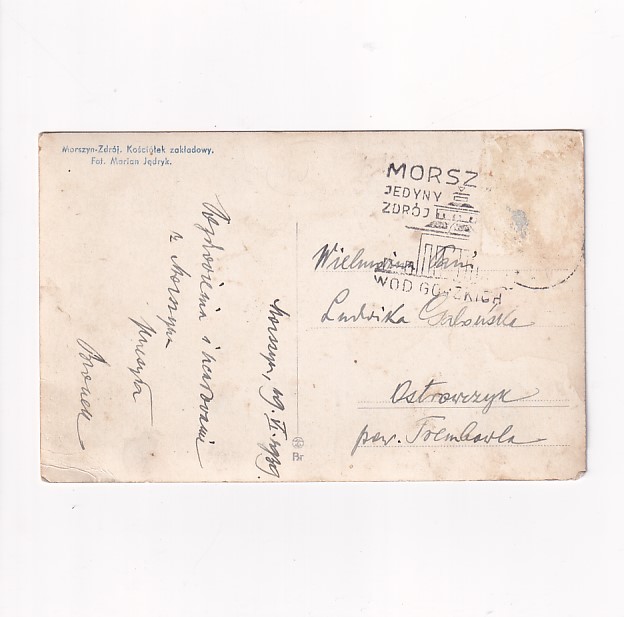 Morszyn-Zdrój. Kościółek zakładowy.
Fot. Marian Jędryk.
MORSZ
JEDYNY
ZDRÓJ
WÓD GORZKICH
Morszyn, 29.VI.1939.
Pozdrowienia i ucałowania
z Morszyna
przesyła
Bronek
Wielmożna Pani
Ludwika
Ostrowczyk
pow. Trembowla
Br